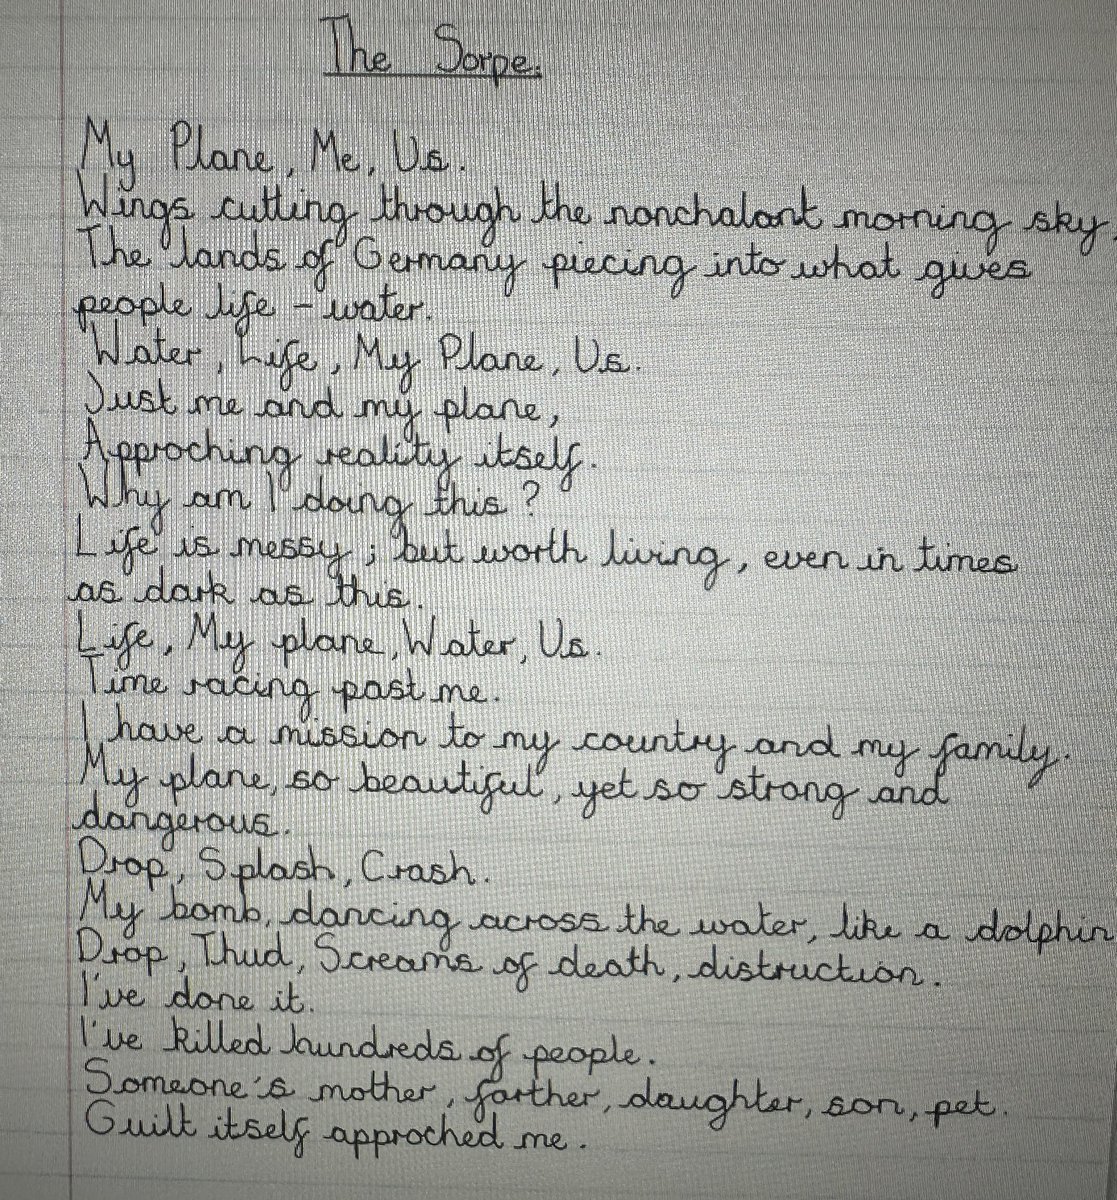 The Sorpe.
My Plane, Me, Us.
Wings cutting through the nonchalant morning sky.
The lands of Germany piecing into what gives
people life - water.
Water, Life, My Plane, Us.
Just me and my plane,
Approching reality itself.
Why am I doing this?
Life is messy; but worth living, even in times
as dark as this.
Life, My plane, Water, Us.
Time racing past me.
I have a mission to my country and my family.
My plane, so beautiful, yet so strong and
dangerous.
Drop, Splash, Crash.
My bomb, dancing across the water, like a dolphin
Drop, Thud, Screams of death, distruction.
I've done it.
I've killed hundreds of people.
Someone's mother, farther, daughter, son, pet.
Guilt itself approched me.